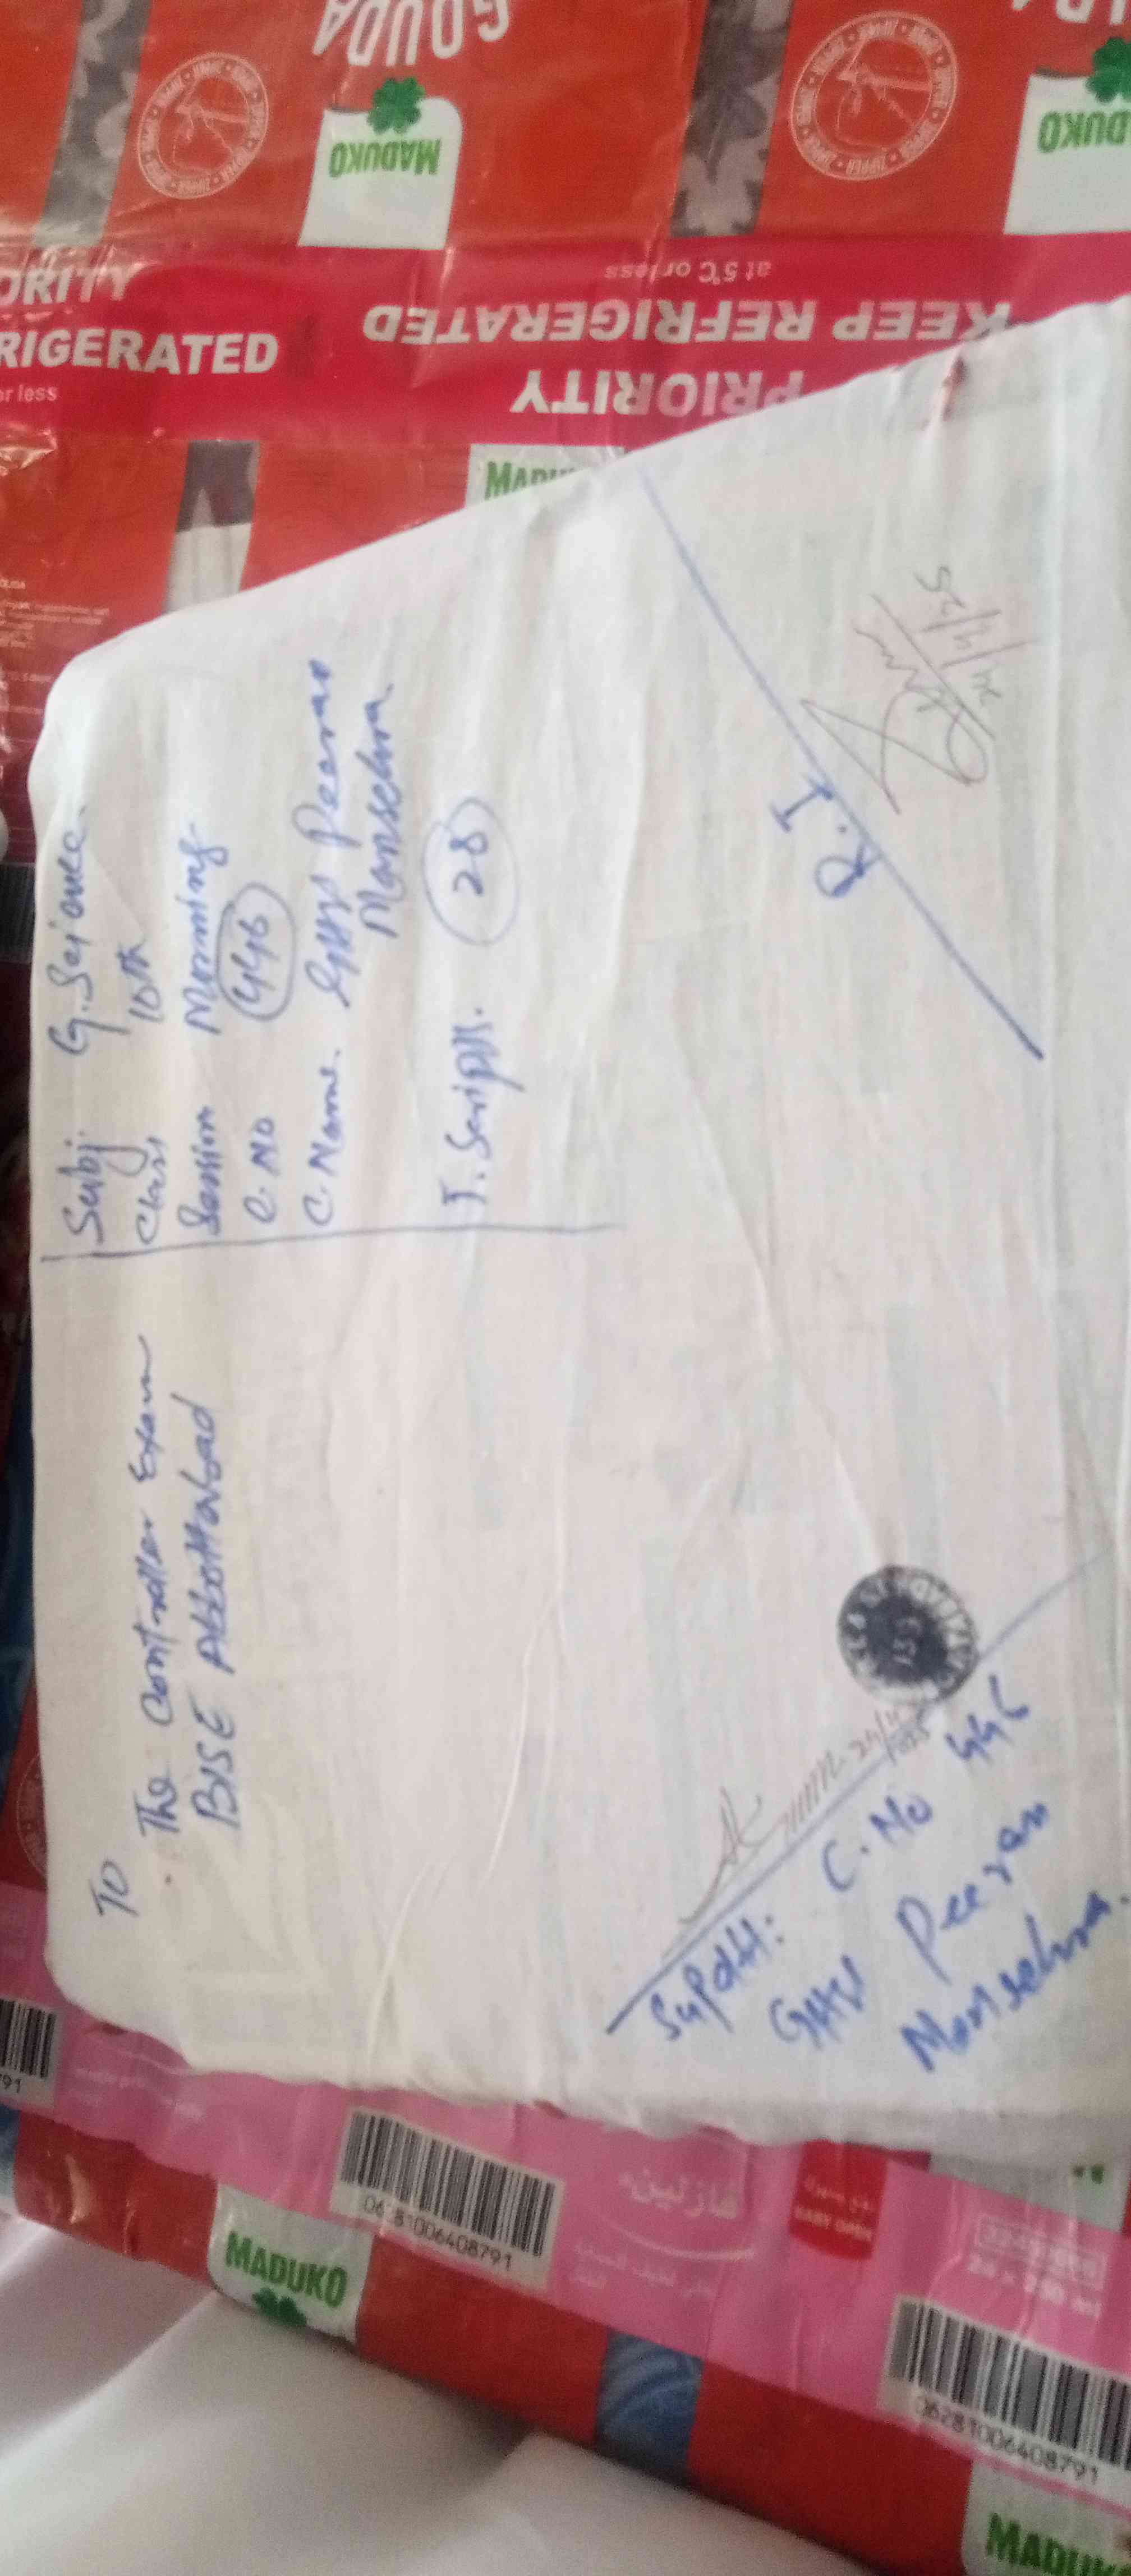 To
The Controller Exam
BISE Abbottabad
Subj: G. Science
Class 10th
Session Morning
C. No 446
C. Name. GHSS Peeran
Mansehra
T. Script. 28
R.I
24/4/25
Supdtt:
C. No 446
GHSS Peeran
Mansehra.
24/4/2025
GOUDA
MADUKO
ZIPPER
MADUKO
at 5°C or less
KEEP REFRIGERATED
PRIORITY
ORITY
RIGERATED
or less
MADUKO
06281006408791
فازلين
EASY OPEN
06281006408791
MADUKO
791